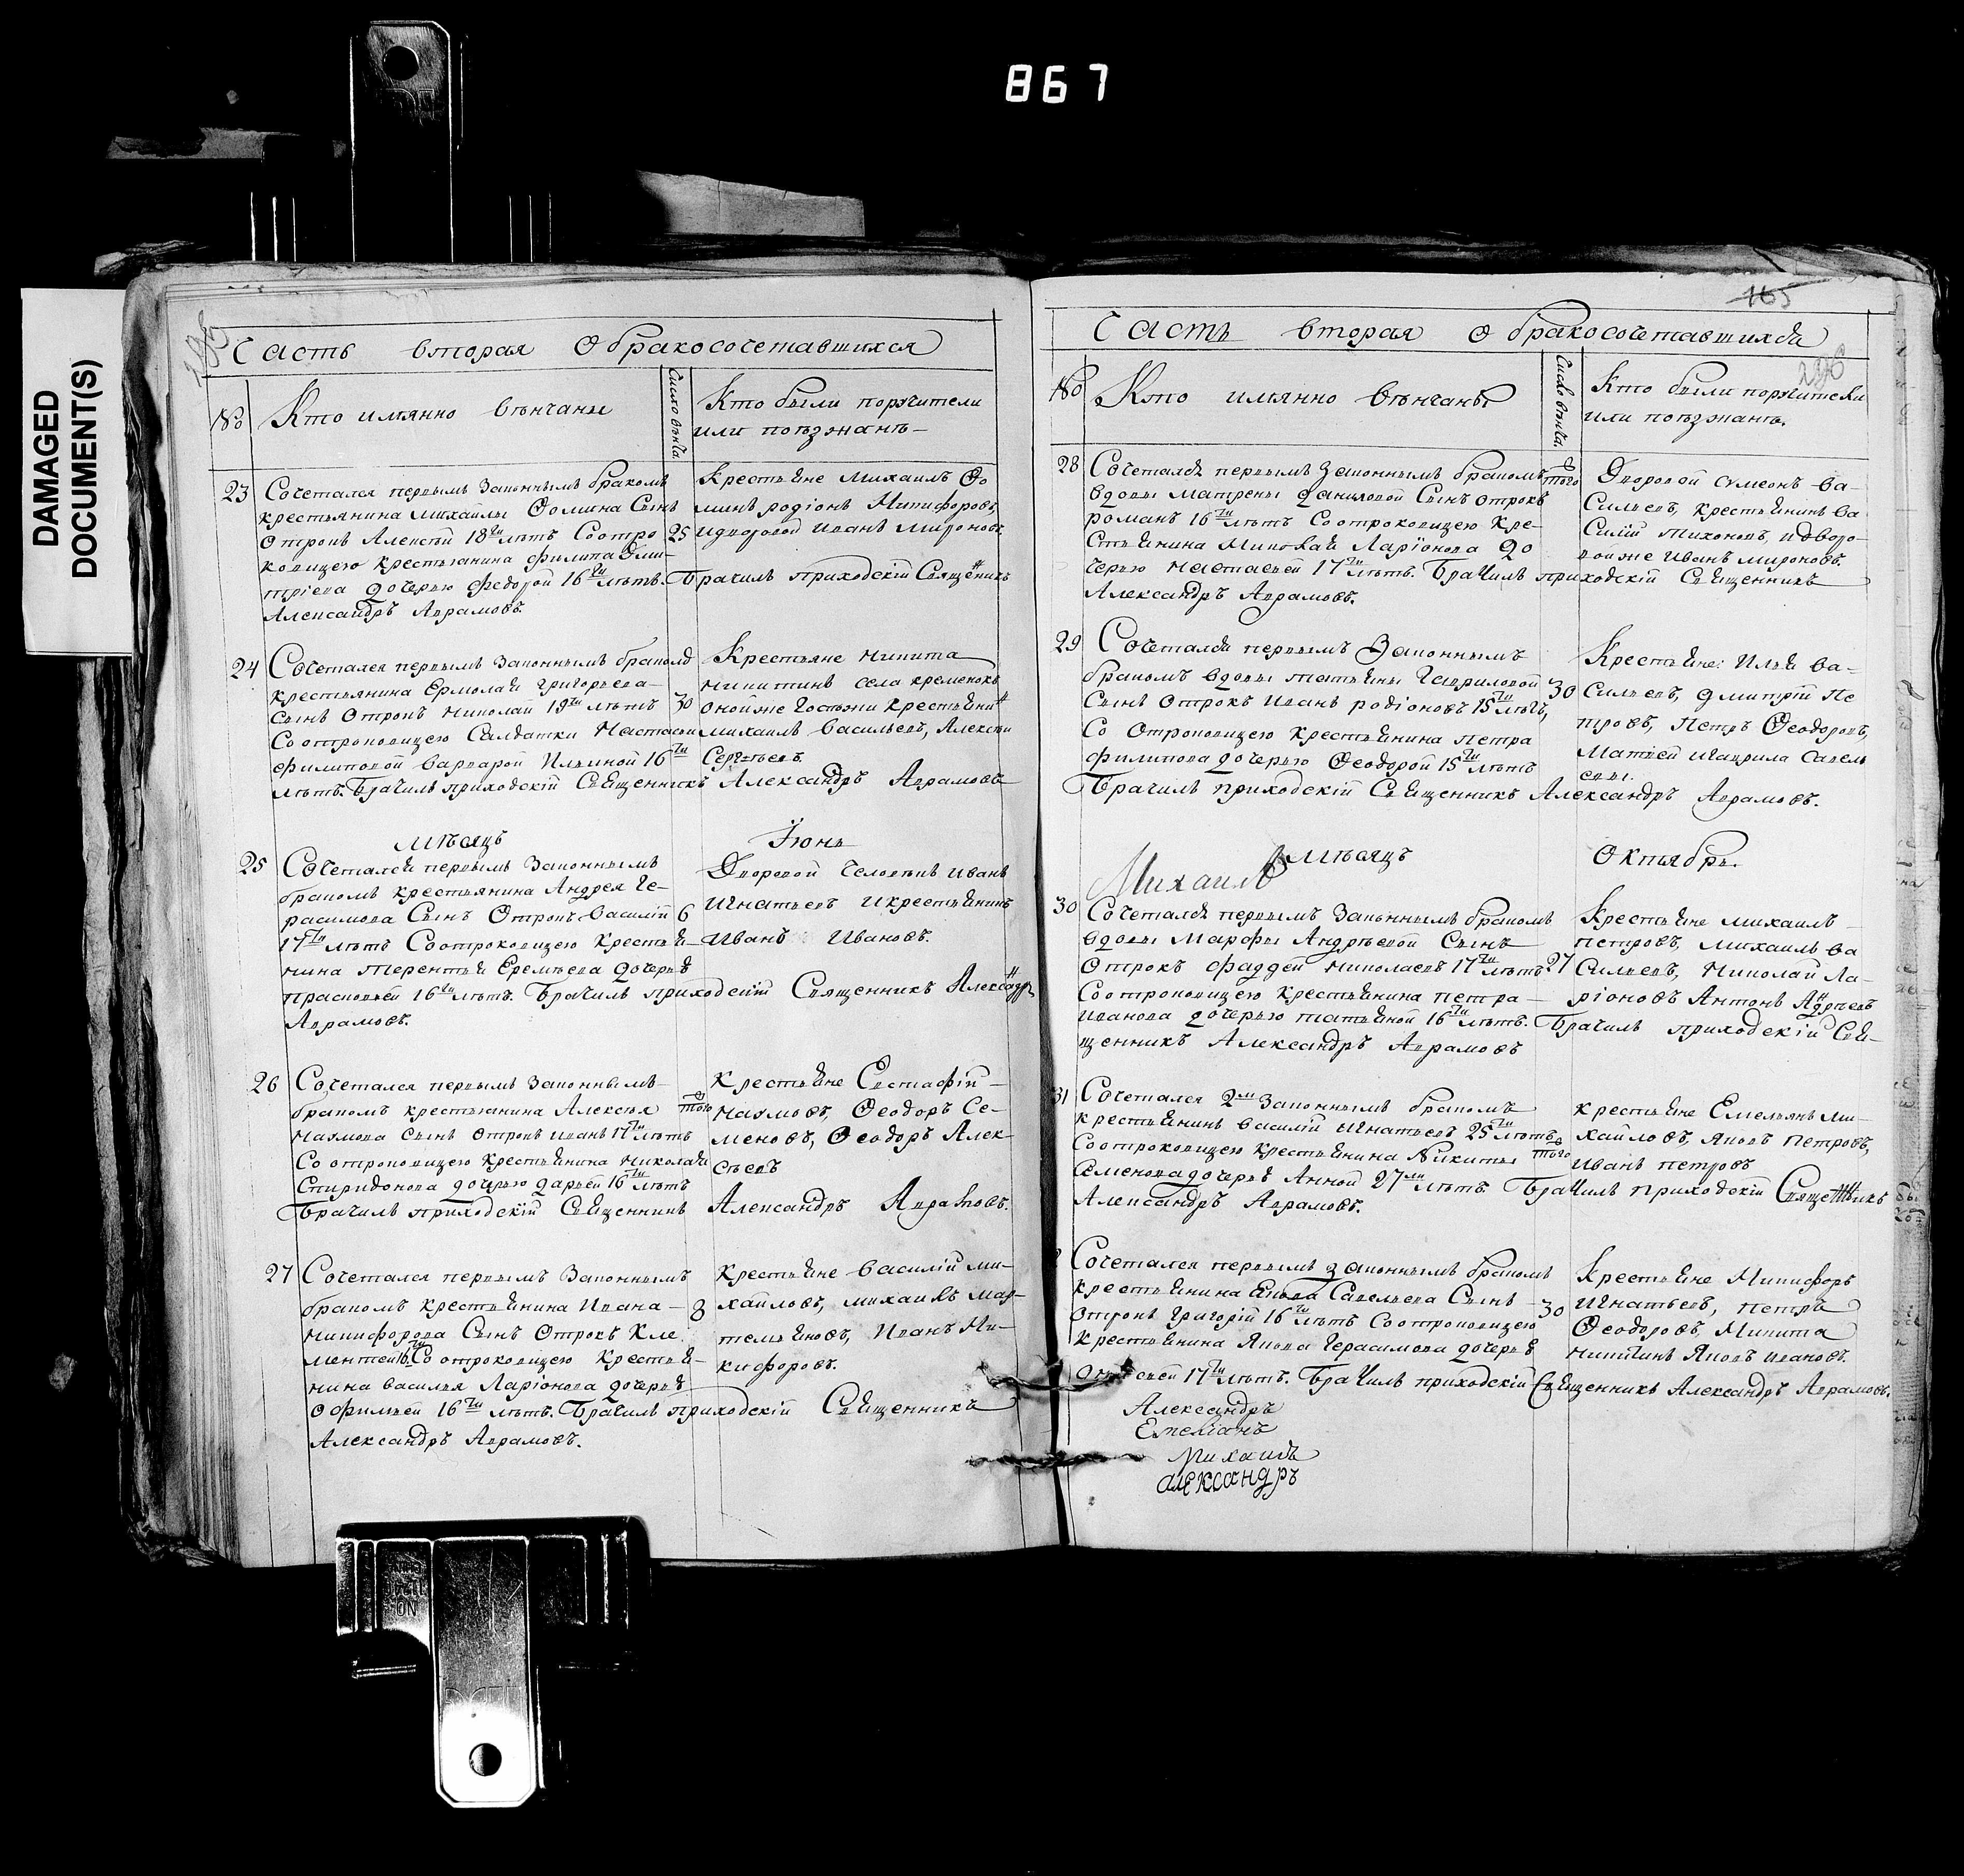 867
DAMAGED
DOCUMENT(S)
Часть вторая о бракосочетавшихся
№
Кто имянно вѣнчаны
Число вѣнча.
Кто были поручители
или поѣзжанѣ
23
Сочетался первымъ законнымъ бракомъ
крестьянина Михайлы Ѳомина Сынъ
Отрокъ Алексѣй 18ти лѣтъ Соотро
ковицею крестьянина филипа Дми-
тріева дочерью федорой 16ти лѣтъ. Брачилъ приходскій Священикъ
Александръ Аврамовъ.
25
Крестьяне Михаилъ Ѳо
минъ родіонъ Никифоровъ,
и дворовой Иванъ Мироновъ.
24
Сочетался первымъ законнымъ бракомъ
крестьянина Ермолая григорьева
Сынъ Отрокъ Николай 19ти лѣтъ
Соотроковицею Салдатки Настасьи
филиповой варварой Ильиной 16ти
лѣтъ. Брачилъ приходскій Священникъ Александръ Аврамовъ
30
Крестьяне никита
никитинъ села кременокъ
оной же Госпожи крестьяни
михаилъ васильевъ, Алексѣй
Сергѣевъ.
Мѣсяцъ Іюнь
25
Сочетался первымъ Законнымъ
бракомъ крестьянина Андрея Ге-
расимова Сынъ Отрокъ василій
17ти лѣтъ Соотроковицею крестья-
нина терентья Еремѣева дочерья
прасковьей 16ти лѣтъ. Брачилъ приходскій Священникъ Александръ
Аврамовъ.
6
Дворовой Человѣкъ иванъ
игнатьевъ и крестьянинъ
Иванъ Ивановъ.
26
Сочетался первымъ Законнымъ
бракомъ крестьянина Алексѣя
Наумова сынъ отрокъ иванъ 17ти лѣтъ
Соотроковицею крестьянина николая
Спиридонова дочерью дарьей 16ти лѣтъ
Брачилъ приходскій Священникъ Александръ Аврамовъ.
того
Крестьяне Евстафій
Наумовъ, Ѳеодоръ Се-
меновъ, Ѳеодоръ Алек-
сѣевъ
27
Сочетался первымъ Законнымъ
бракомъ крестьянина Ивана
никифорова Сынъ Отрокъ Кле
ментей 16ти Соотроковицею крестья-
нина василья Ларіонова дочерья
Офимьей 16ти лѣтъ. Брачилъ приходскій Священникъ
Александръ Аврамовъ.
8
крестьяне василій ми-
хайловъ, михаилъ мар-
темьяновъ, Иванъ Ни-
кифоровъ.
165
Часть вторая о бракосочетавшихся
№
Кто имянно вѣнчаны
Число вѣнча.
Кто были поручители
или поѣзжанѣ.
28
Сочетался первымъ законнымъ бракомъ
вдовы Матрены даниловой Сынъ отрокъ
романъ 16ти лѣтъ Соотроковицею кре-
стьянина Николая Ларіонова до
черью настасьей 17ти лѣтъ. Брачилъ приходскій Священникъ
Александръ Аврамовъ.
того
Дворовой сумеонъ ва-
сильевъ, крестьянинъ ва
силій тихоновъ, и дворо-
вой же иванъ мироновъ.
29
Сочетался первымъ Законнымъ
бракомъ вдовы татьяны Гавриловой
Сынъ отрокъ иванъ родіоновъ 15ти лѣтъ,
Со Отроковицею крестьянина петра
филипова дочерью Ѳеодорой 15ти лѣтъ
Брачилъ приходскій Священникъ Александръ Аврамовъ.
30
Крестьяне: Илья ва-
сильевъ, дмитрій Пе
тровъ, Петръ Ѳеодоровъ,
Матвей и Гаврила Савель
евы.
Мѣсяцъ Октябрь.
Михаилъ
30
Сочетался первымъ Законнымъ бракомъ
вдовы Марѳы Андрѣевой Сынъ
отрокъ фаддей николаевъ 17ти лѣтъ
Соотроковицею крестьянина петра
иванова дочерью татьяной 16ти лѣтъ. Брачилъ приходскій Свя-
щенникъ Александръ Аврамовъ
27
крестьяне михаилъ
петровъ, михаилъ ва
сильевъ, Николай Ла-
ріоновъ Антонъ Андрѣевъ
31
Сочетался 2мъ Законнымъ бракомъ
крестьянинъ василій игнатьевъ 25ти лѣтъ
Соотроковицею крестьянина Никиты
Семенова дочерья Анной 27ми лѣтъ. Брачилъ приходскій Священникъ
Александръ Аврамовъ.
того
крестьяне Емельянъ ми-
хайловъ, яковъ петровъ,
иванъ петровъ
Сочетался первымъ законнымъ бракомъ
крестьянина Савельева Сынъ
отрокъ григорій 16ти лѣтъ Соотроковицею
крестьянина Якова Герасимова дочерья
17ти лѣтъ. Брачилъ приходскій Священникъ Александръ Аврамовъ.
30
крестьяне Никифоръ
игнатьевъ, петръ
Ѳеодоровъ, Никита
никитинъ Яковъ ивановъ.
Александръ
Емеліанъ
Михаилъ
александръ